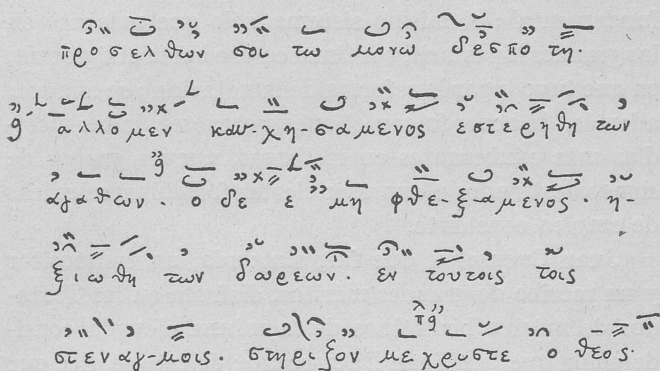 προσελθων σοι τω μονω δεσποτη·
αλλο μεν καυ-χη-σαμενος εστερηθη των
αγαθων · ο δε ε μη φθε-ξ-αμενος · η-
ξιωθη των δωρεων· εν τουτοις τοις
στεναγ-μοις · στηριξον με χρυστε ο θεος·